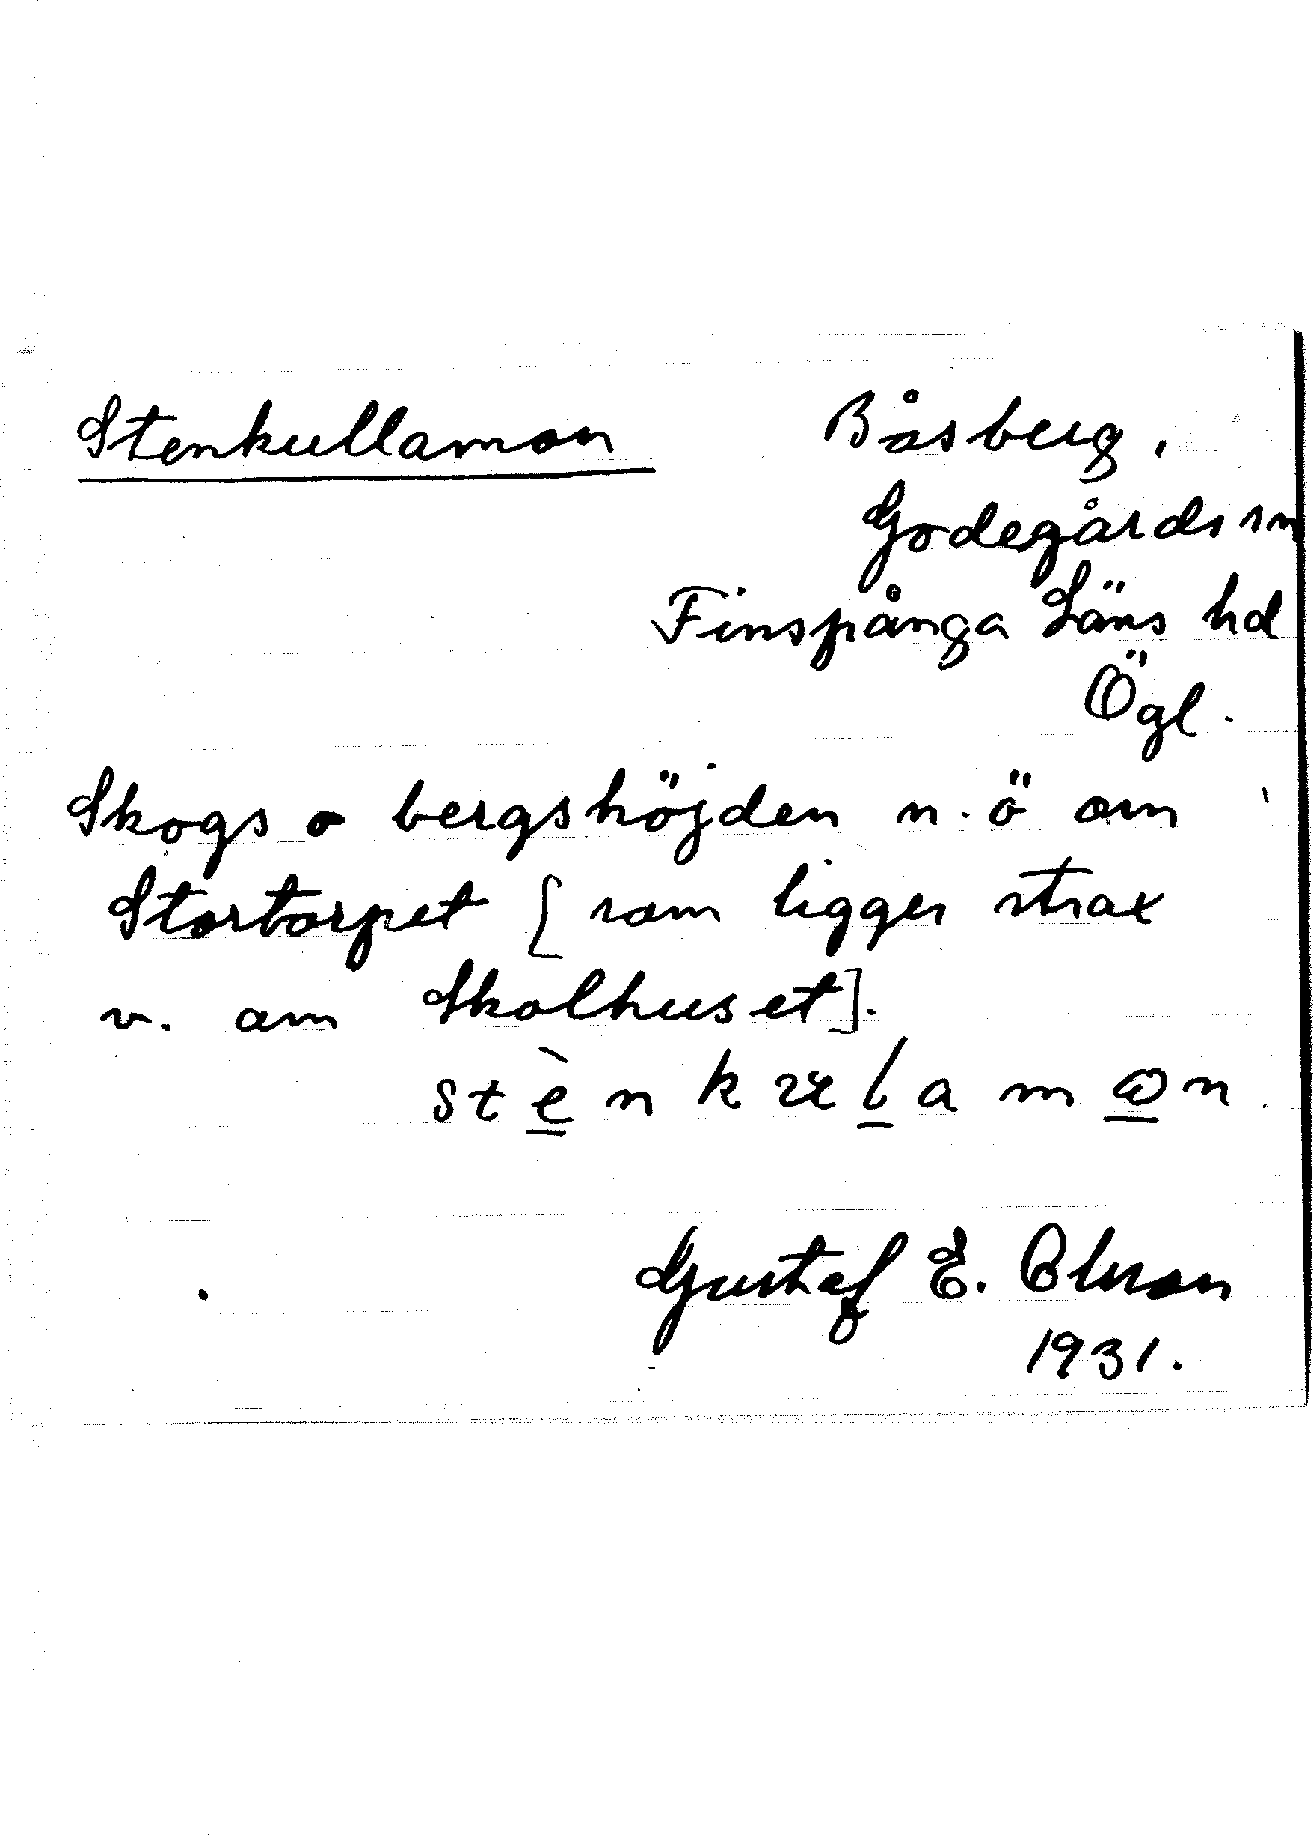 Stenkullamon
Båsberg.
Godegårds sn
Finspånga Läns hd
Ögl.
Skogs o bergshöjden n.ö om
Stortorpet [som ligger strax
v. om Skolhuset].
stènkulamon.
Gustaf E. Olsson
1931.